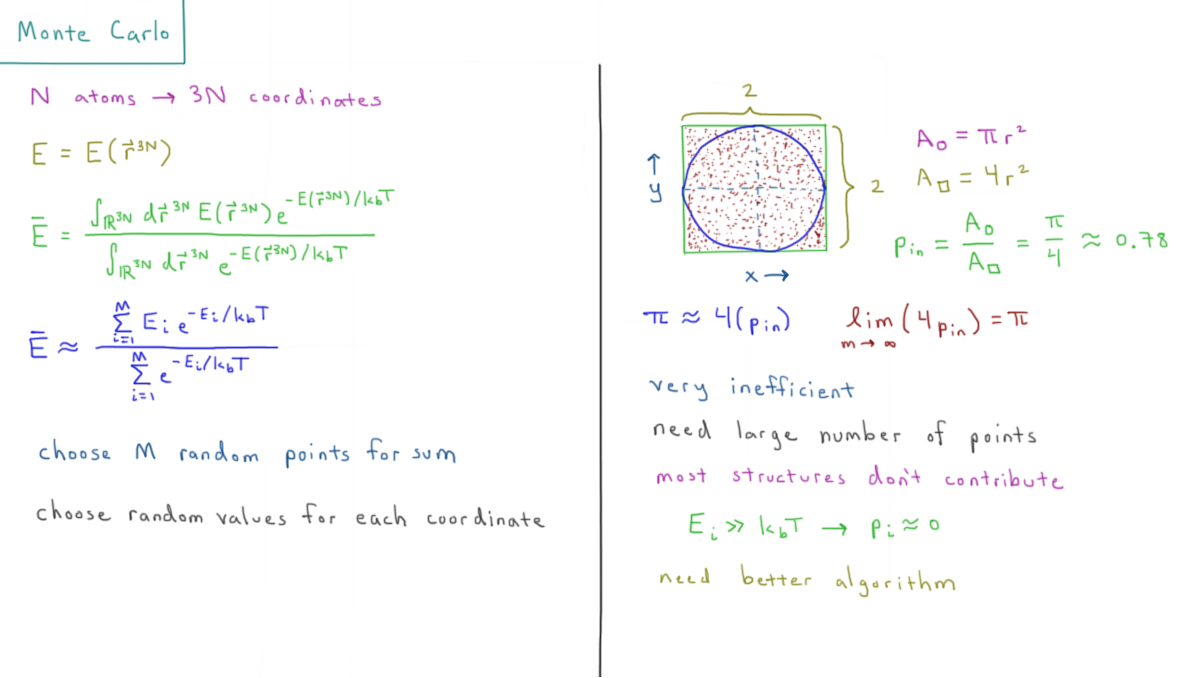 Monte Carlo
N atoms → 3N coordinates
E = E(r⃗³ᴺ)
Ē = ∫_ℝ³ᴺ dr⃗³ᴺ E(r⃗³ᴺ) e^(-E(r⃗³ᴺ)/k_bT) / ∫_ℝ³ᴺ dr⃗³ᴺ e^(-E(r⃗³ᴺ)/k_bT)
Ē ≈ Σ_{i=1}^{M} E_i e^(-E_i/k_bT) / Σ_{i=1}^{M} e^(-E_i/k_bT)
choose M random points for sum
choose random values for each coordinate
2
↑
y
2
x →
A_○ = πr²
A_□ = 4r²
p_in = A_○ / A_□ = π/4 ≈ 0.78
π ≈ 4(p_in)
lim_{m→∞} (4p_in) = π
very inefficient
need large number of points
most structures don't contribute
E_i ≫ k_bT → p_i ≈ 0
need better algorithm